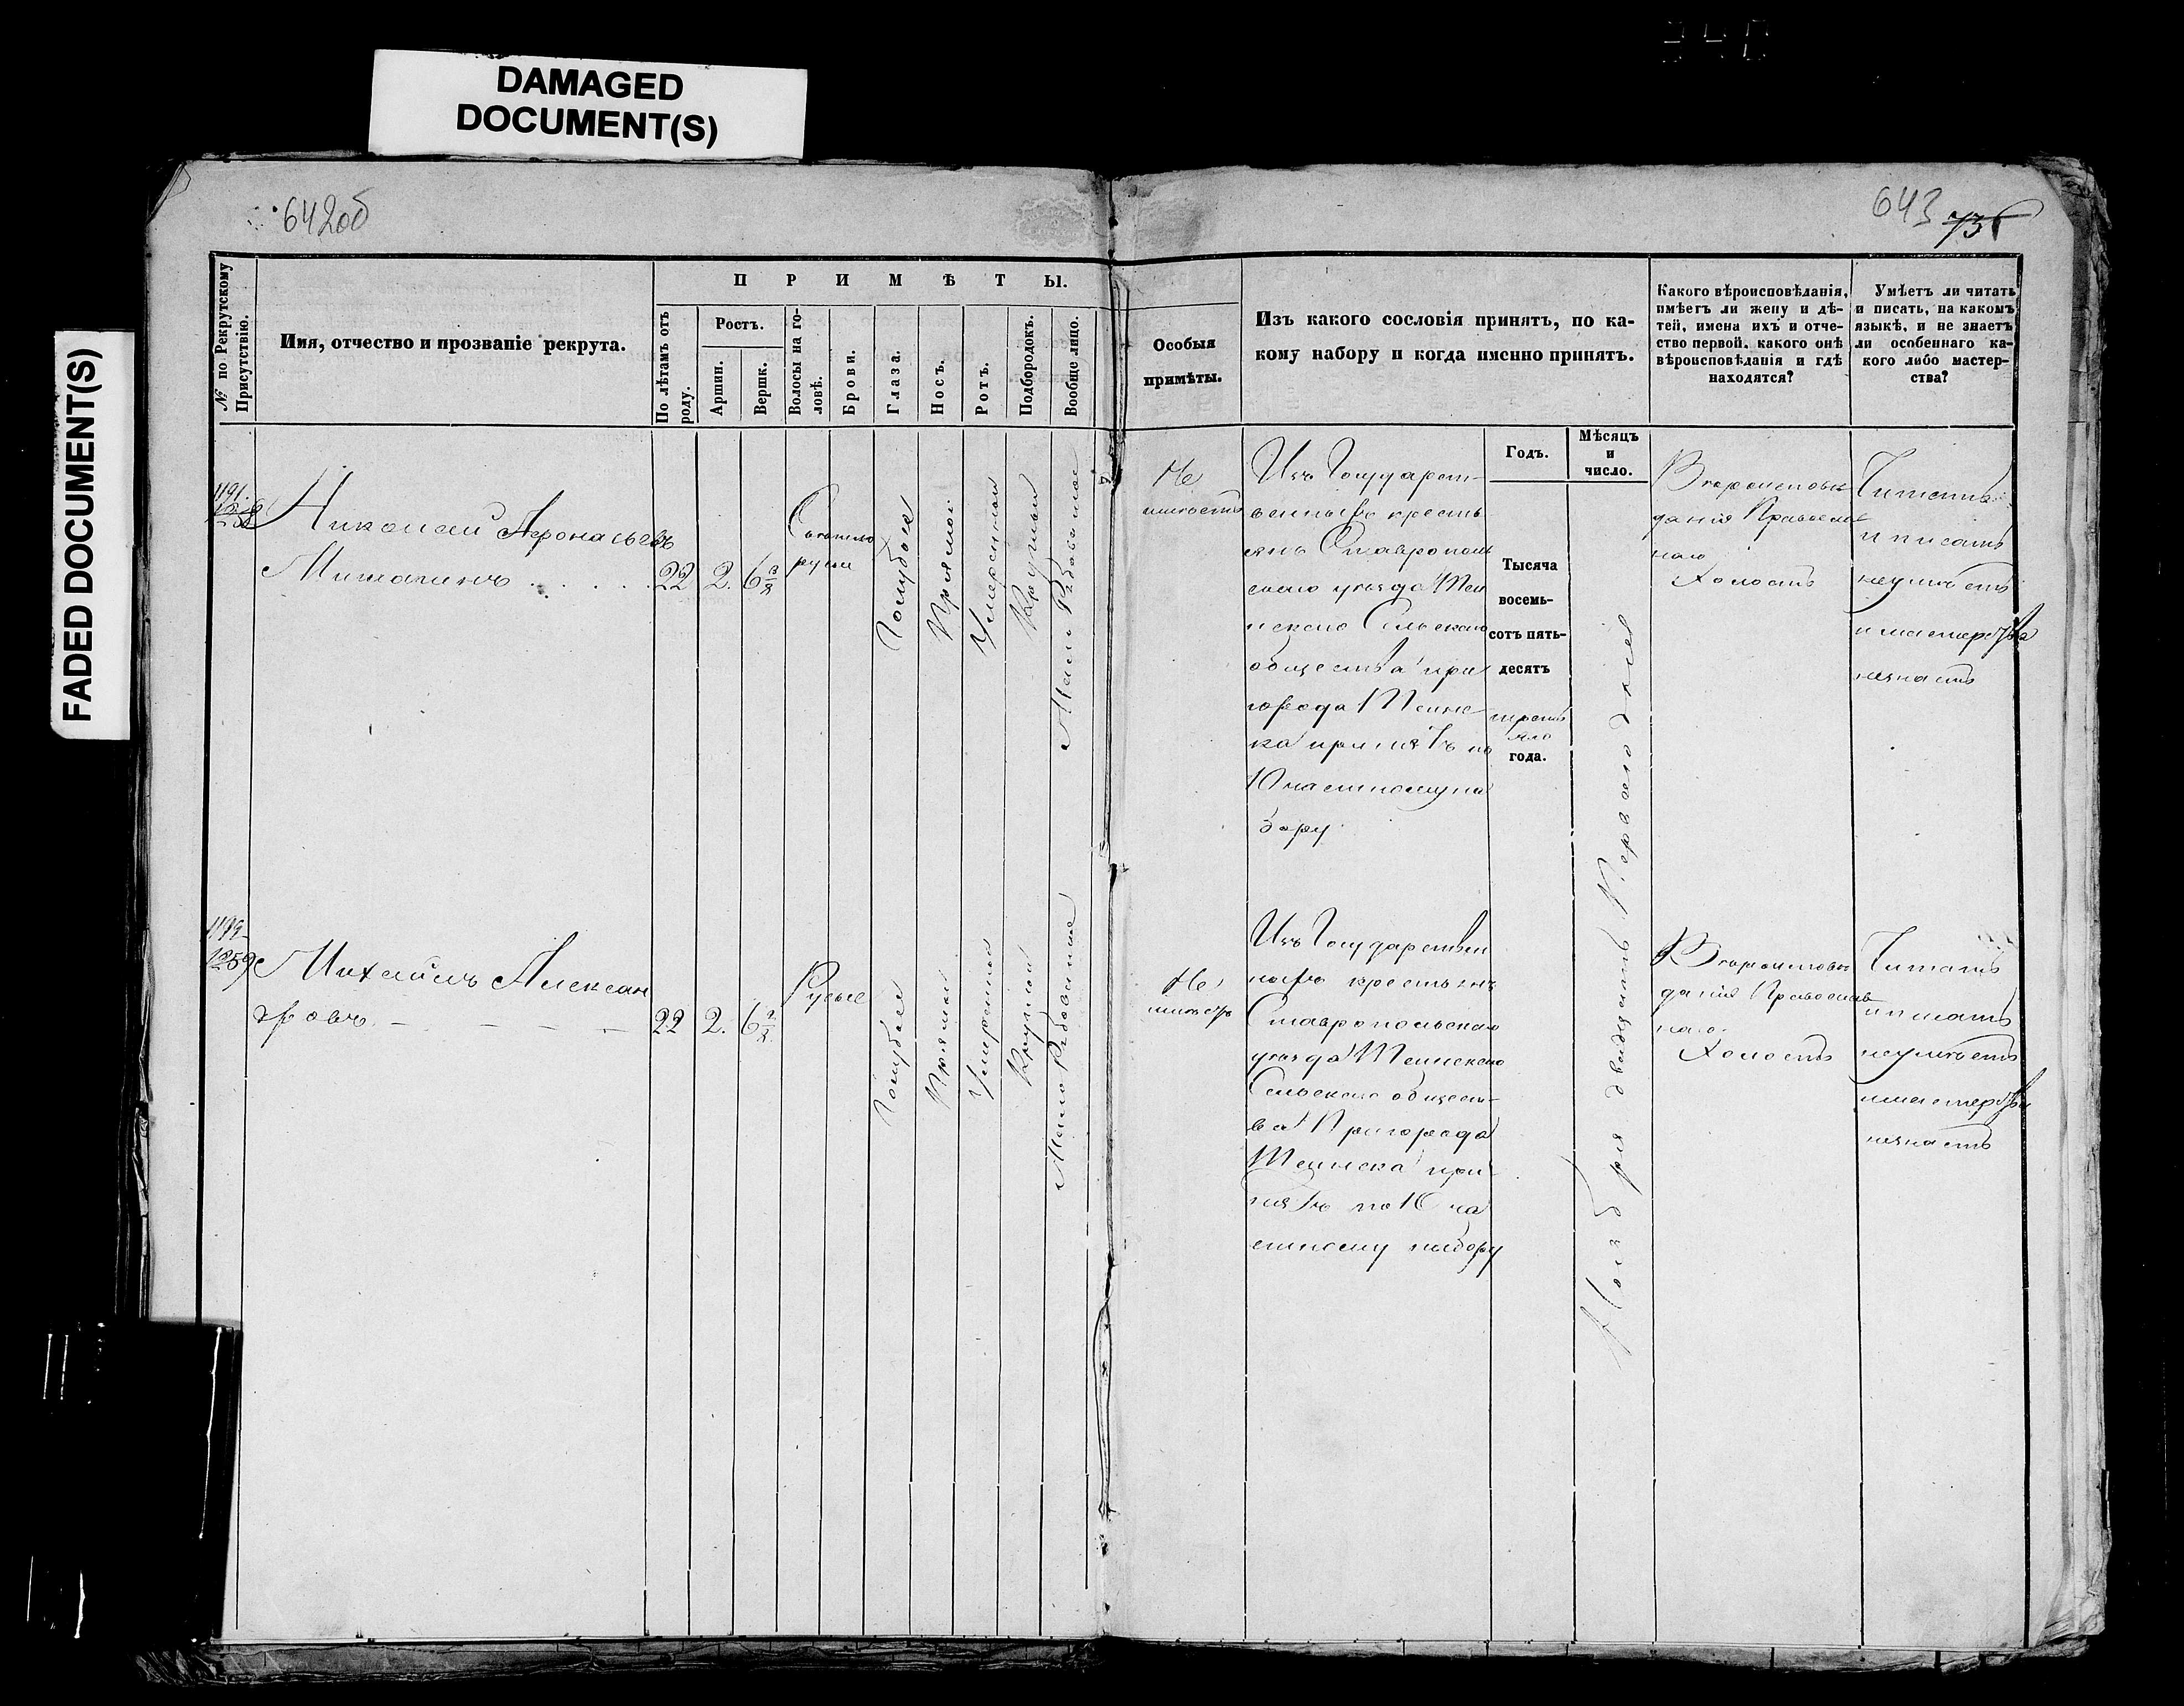 DAMAGED
DOCUMENT(S)
FADED DOCUMENT(S)
642об
643
736
№ по Рекрутскому
Присутствію.
Имя, отчество и прозваніе рекрута.
ПРИМѢТЫ.
По лѣтамъ отъ
роду.
Ростъ.
Аршин.
Вершк.
Волосы на го-
ловѣ.
Брови.
Глаза.
Носъ.
Ротъ.
Подбородокъ.
Вообще лицо.
Особыя
примѣты.
Изъ какого сословія принятъ, по ка-
кому набору и когда именно принятъ.
Какого вѣроисповѣданія,
имѣетъ ли жену и дѣ-
тей, имена ихъ и отче-
ство первой, какого онѣ
вѣроисповѣданія и гдѣ
находятся?
Умѣетъ ли читать
и писать, на какомъ
языкѣ, и не знаетъ
ли особеннаго ка-
кого либо мастер-
ства?
Годъ.
Мѣсяцъ
и
число.
1191.
1258
Николай Афонасьевъ
22
2.
Свѣтло
русые
Голубые
Прямой
Умѣренный
Круглый
Мало Рябоватое
Не
имѣетъ
Изъ Государст-
венныхъ кресть
янъ Ставрополь
скаго уѣзда
Сельскаго
общества при
города
ка принятъ по
10 частному на
бору.
Тысяча
восемь-
сотъ пять-
десятъ
третьяго
года.
Ноября двадцать Перваго дня
Вѣроисповѣ
данія Православ
наго
Холостъ
Читать
и писать
неумѣетъ
и мастерства
незнаетъ
1199.
1259
Михайлъ Алексан
дровъ
22
2.
Русые
Голубые
Прямой
Умѣренный
Круглый
Мало Рябоватое
Не
имѣетъ
Изъ Государствен
ныхъ крестьянъ
Ставропольскаго
уѣзда
Сельскаго общест-
ва Пригорода
при-
нятъ по 10 ча
стному набору
Вѣроисповѣ
данія Православ
наго.
Холостъ
Читать
и писать
неумѣетъ
и мастерства
незнаетъ